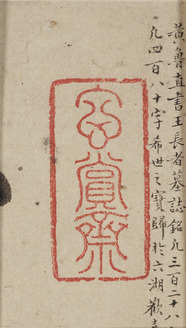 黄魯直書王長者墓誌銘凡三百二十八
凡四百八十字希世之寶歸於六湖歡喜
玄賞齋